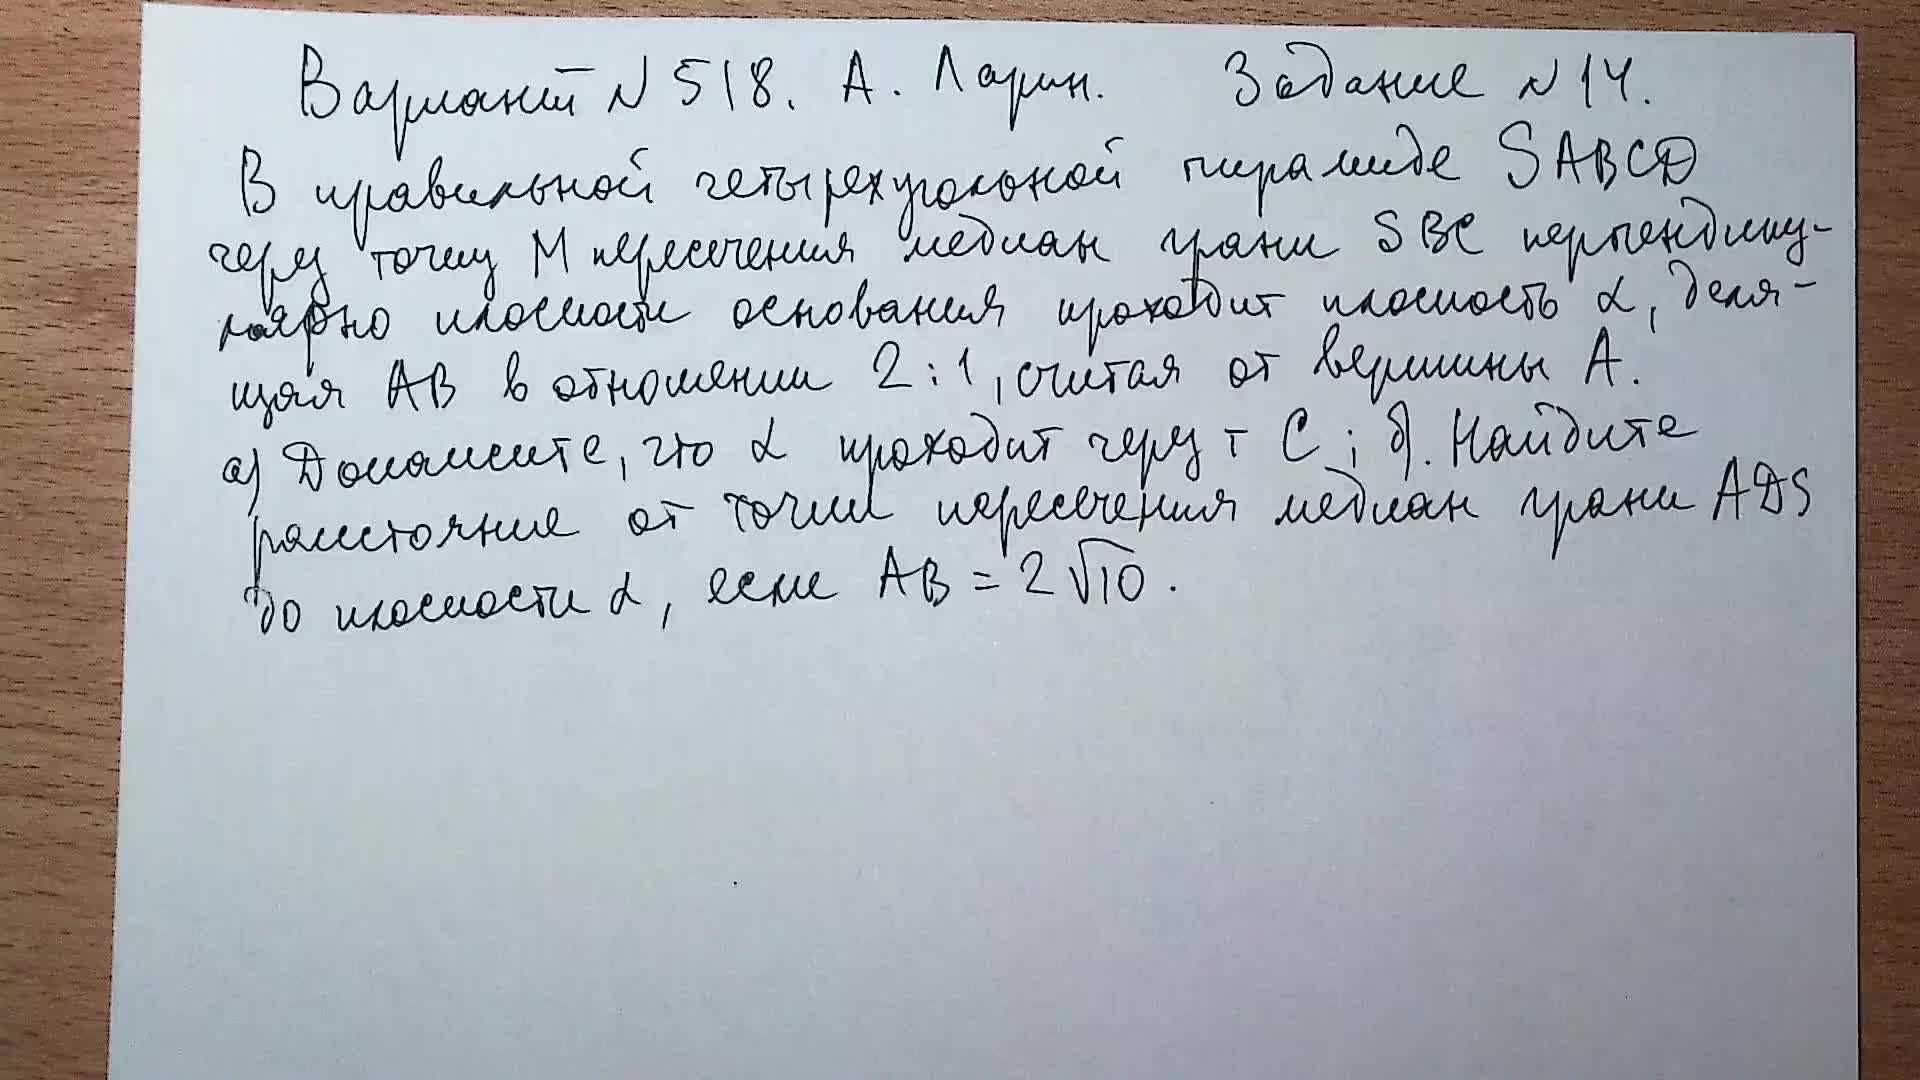 Вариант N 518. А. Ларин. Задание N 14.
В правильной четырехугольной пирамиде SABCD
через точку M пересечения медиан грани SBC перпендику-
лярно плоскости основания проходит плоскость α, деля-
щая AB в отношении 2:1, считая от вершины A.
а) Докажите, что α проходит через т C; б). Найдите
расстояние от точки пересечения медиан грани ADS
до плоскости α, если AB = 2√10.